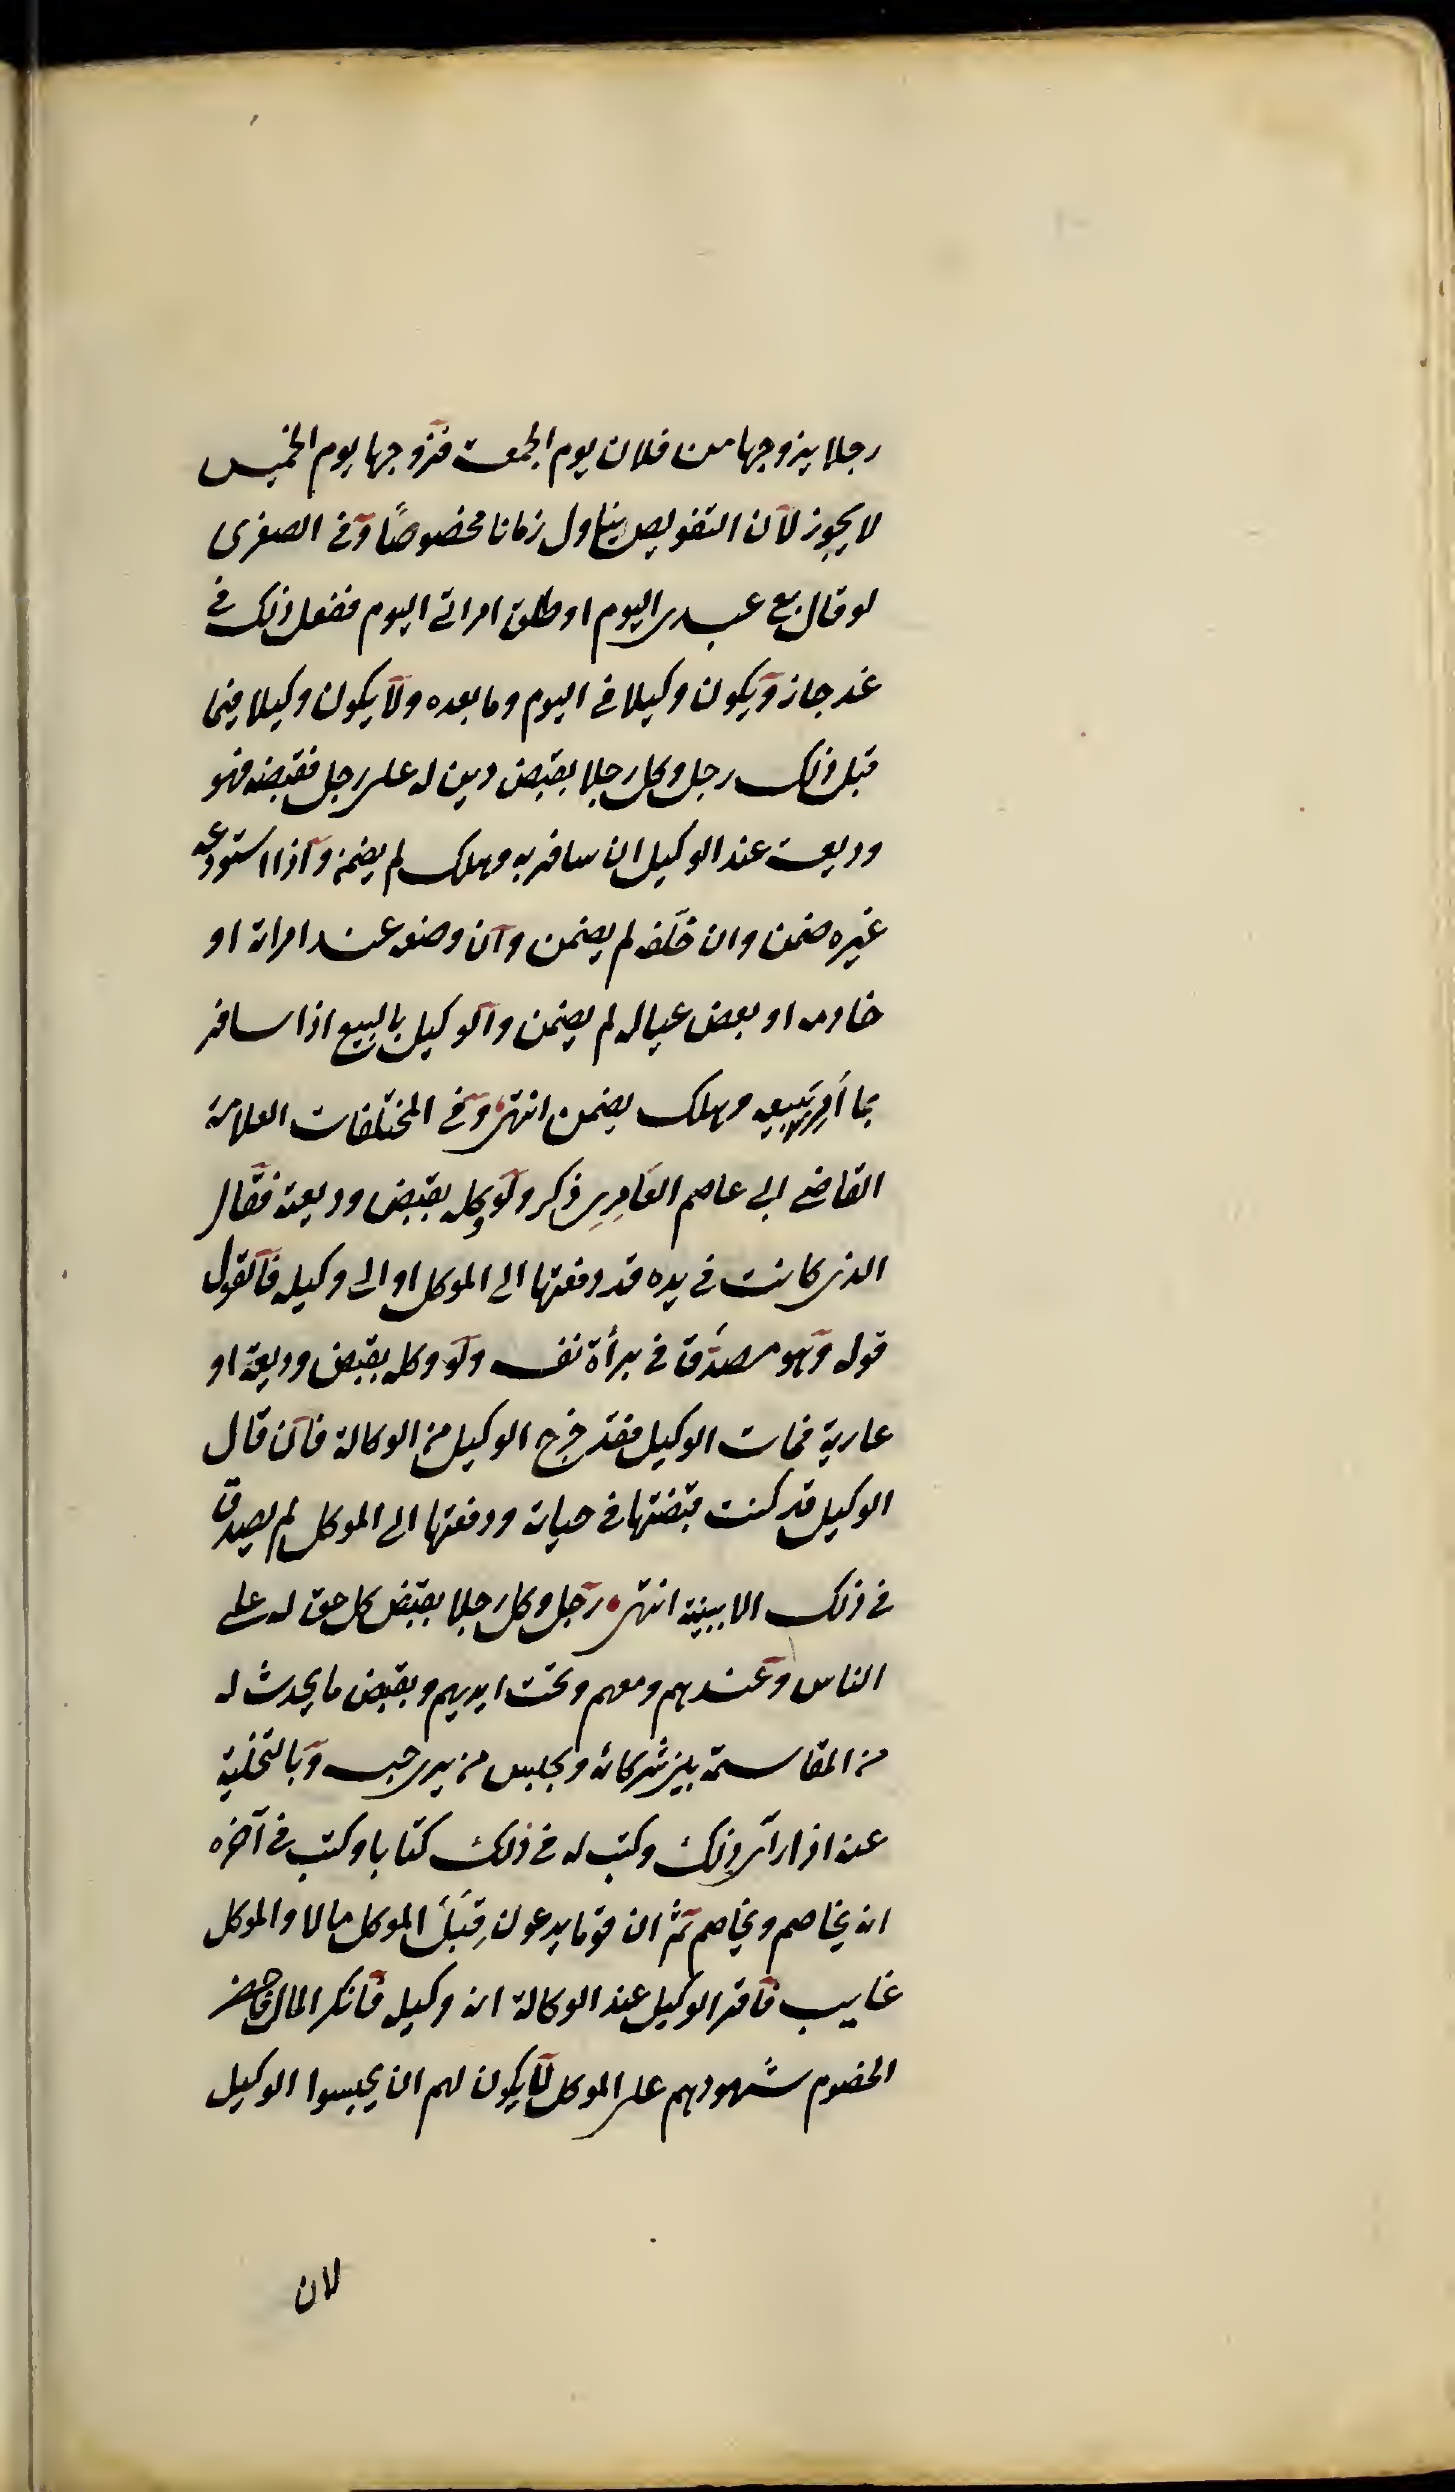 رجلا يزوجها من فلان يوم الجمعة فزوجها يوم الخميس
لا يجوز لان التفويض يتناول زمانا مخصوصًا وفي الصغرى
لو قال بع عبدى اليوم او طلق امراتي اليوم ففعل ذلك في
غد جاز ويكون وكيلا في اليوم وما بعده ولا يكون وكيلا فيما
قبل ذلك رجل وكل رجلا بقبض دين له على رجل فقبضه فهو
وديعة عند الوكيل ان سافر به وهلك لم يضمن واذا استودعه
غيره ضمن وان خلّفه لم يضمن وان وضعه عند امراته او
خادمه او بعض عياله لم يضمن والوكيل بالبيع اذا سافر
بما اُمِر ببيعه وهلك يضمن انتهى وفي المختلفات العلامة
القاضي ابي عاصم العَامِرِي ذكر ولو وكله بقبض وديعة فقال
الذى كانت في يده قد دفعتها الى الموكل او الى وكيله فالقول
قوله وهو مصدَّق في برأة نفسه ولو وكله بقبض وديعة او
عارية فمات الوكيل فقد خرج الوكيل من الوكالة فان قال
الوكيل قد كنت قبضتها في حياته ودفعتها الى الموكل لم يصدق
في ذلك الا ببينة انتهى رجل وكل رجلا بقبض كل حق له على
الناس وعندهم ومعهم وتحت ايديهم وبقبض ما يحدث له
من المقاسمة بين شركائه وبحبس من يرى حبسه وبالتخلية
عنه اذا راى ذلك وكتب له في ذلك كتابا وكتب في آخره
انه يخاصم ويخاصم ثم ان قوما يدعون قِبَلَ الموكل مالا والموكل
غايب فاقر الوكيل عند الوكالة انه وكيله فانكر المال فاحضر
الخصوم شهودهم على الموكل لا يكون لهم ان يحبسوا الوكيل
لان